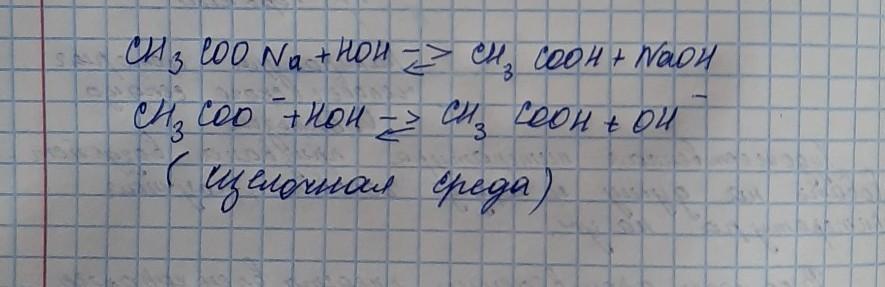 CH₃COONa + HOH ⇄ CH₃COOH + NaOH
CH₃COO⁻ + HOH ⇄ CH₃COOH + OH⁻
(щелочная среда)